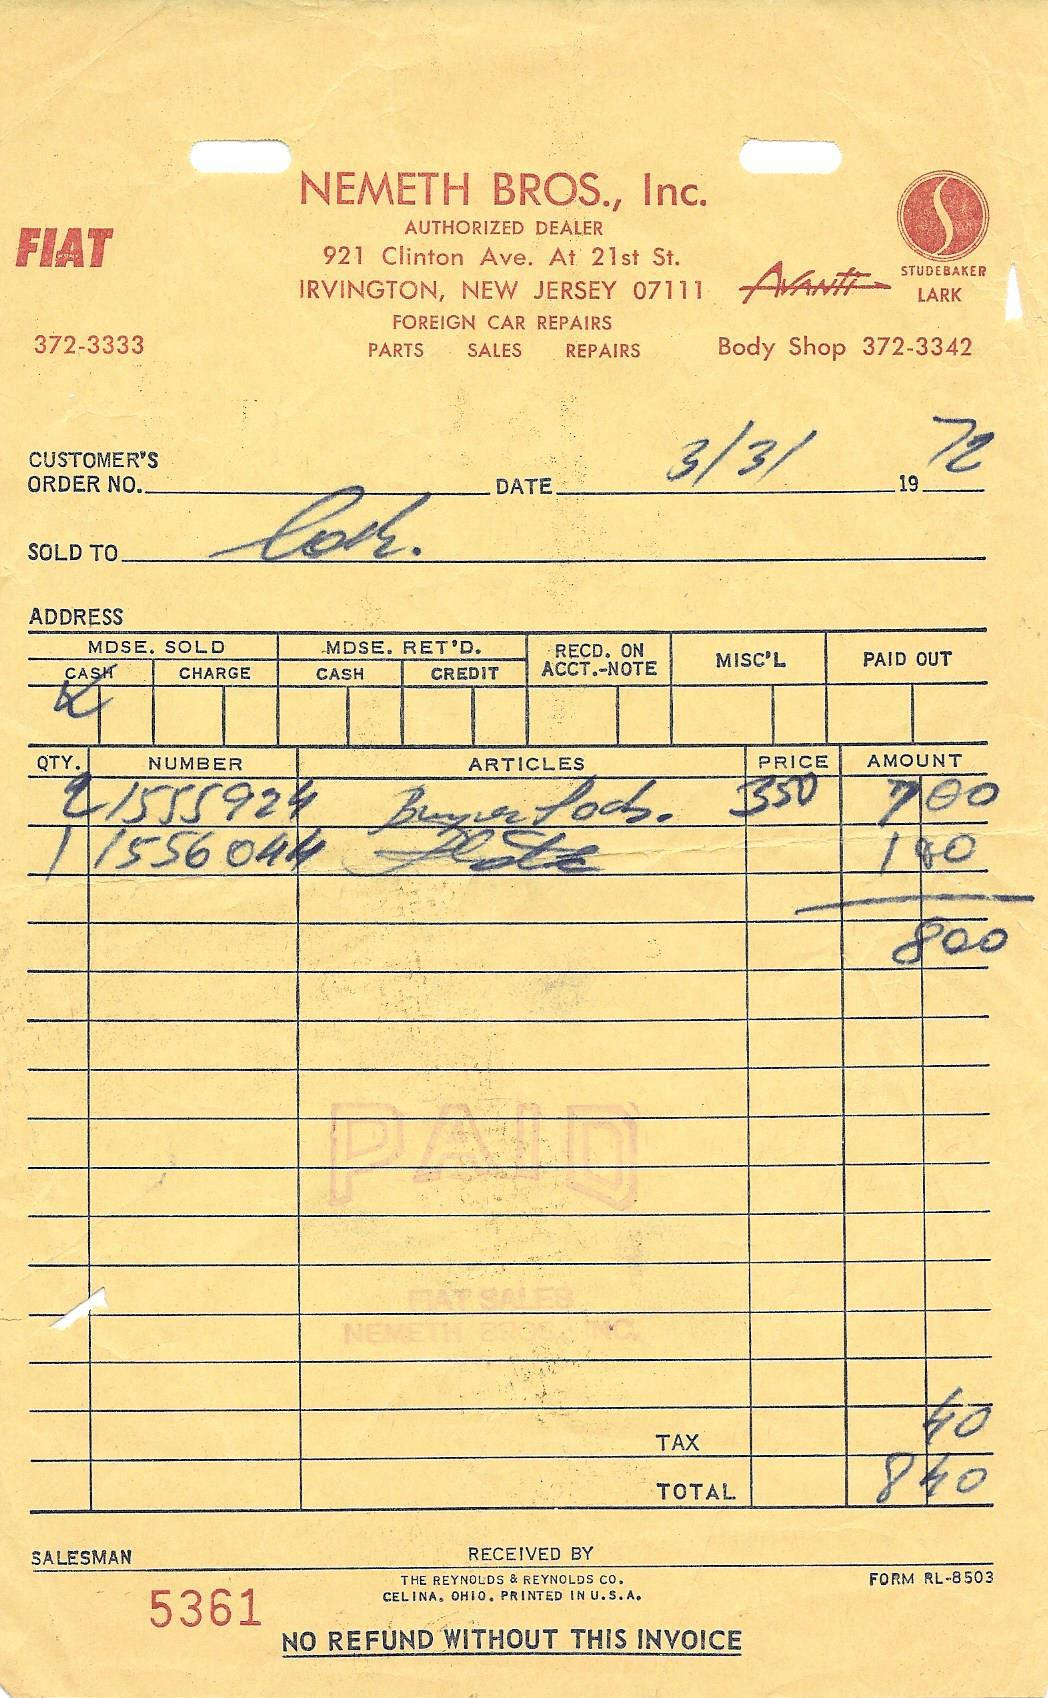 NEMETH BROS., Inc.
AUTHORIZED DEALER
FIAT
921 Clinton Ave. At 21st St.
IRVINGTON, NEW JERSEY 07111
AVANTI
STUDEBAKER
LARK
FOREIGN CAR REPAIRS
372-3333
PARTS SALES REPAIRS
Body Shop 372-3342
CUSTOMER'S
ORDER NO. DATE 3/31 19 72
SOLD TO
ADDRESS
MDSE. SOLD MDSE. RET'D. RECD. ON ACCT.-NOTE MISC'L PAID OUT
CASH CHARGE CASH CREDIT
QTY. NUMBER ARTICLES PRICE AMOUNT
2 1555924 350 700
1 1556044 100
800
PAID
FIAT SALES
NEMETH BROS., INC.
TAX 40
TOTAL 840
SALESMAN RECEIVED BY
THE REYNOLDS & REYNOLDS CO.
CELINA, OHIO. PRINTED IN U.S.A.
FORM RL-8503
5361
NO REFUND WITHOUT THIS INVOICE